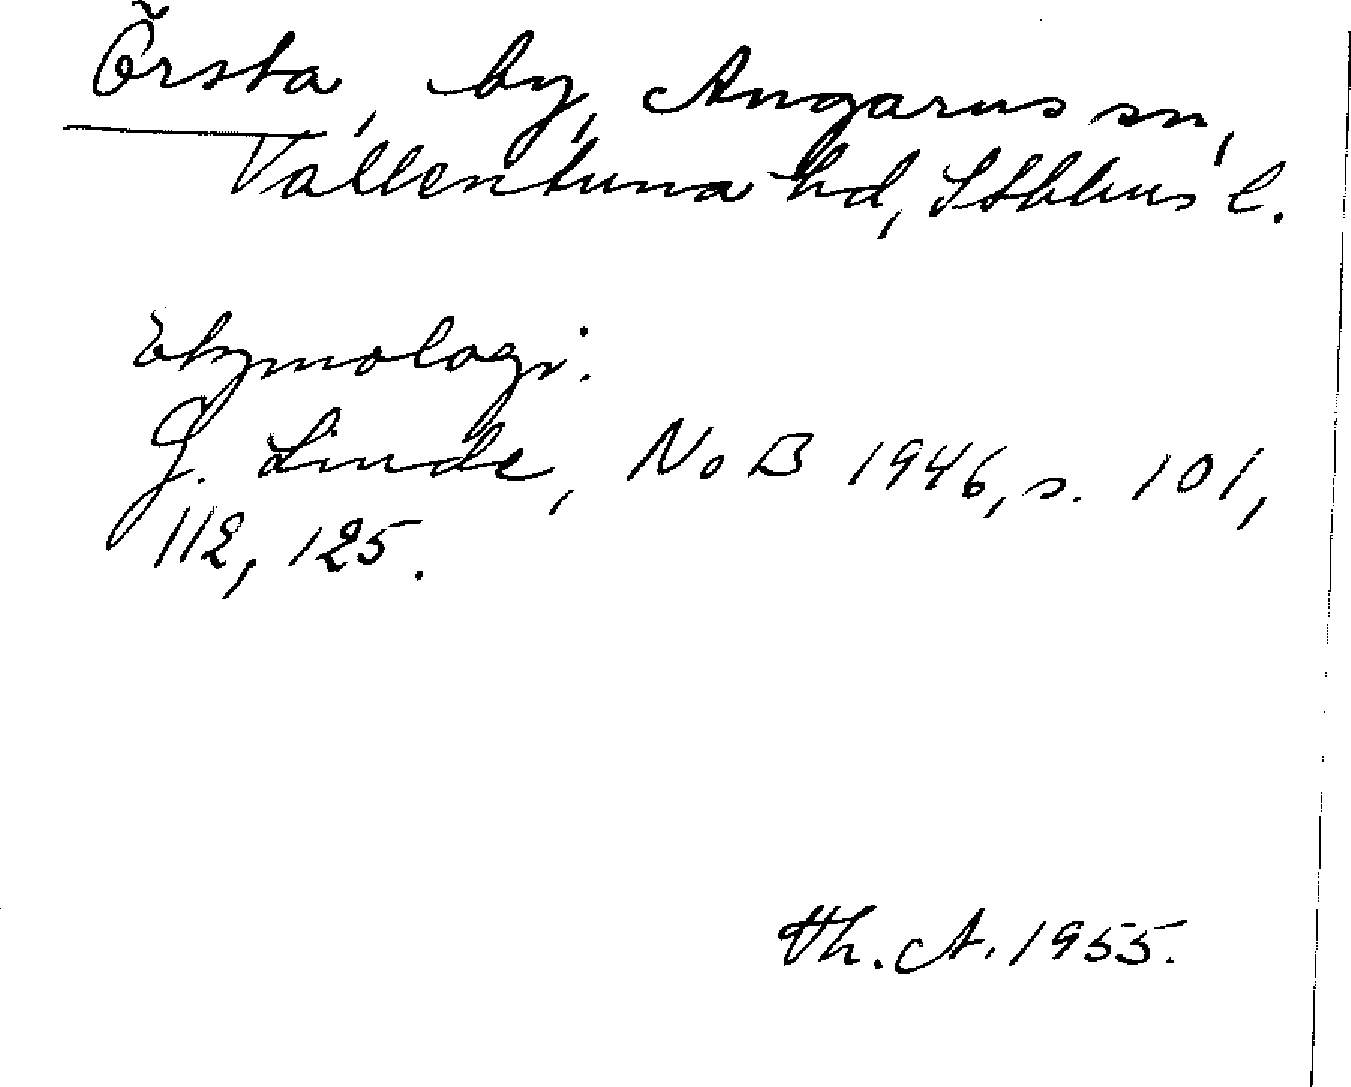 Örsta, by, Angarns sn,
Vallentuna hd, Sthlms l.
Etymologi:
G. Linde, NoB 1946, s. 101,
112, 125.
Th. A. 1955.